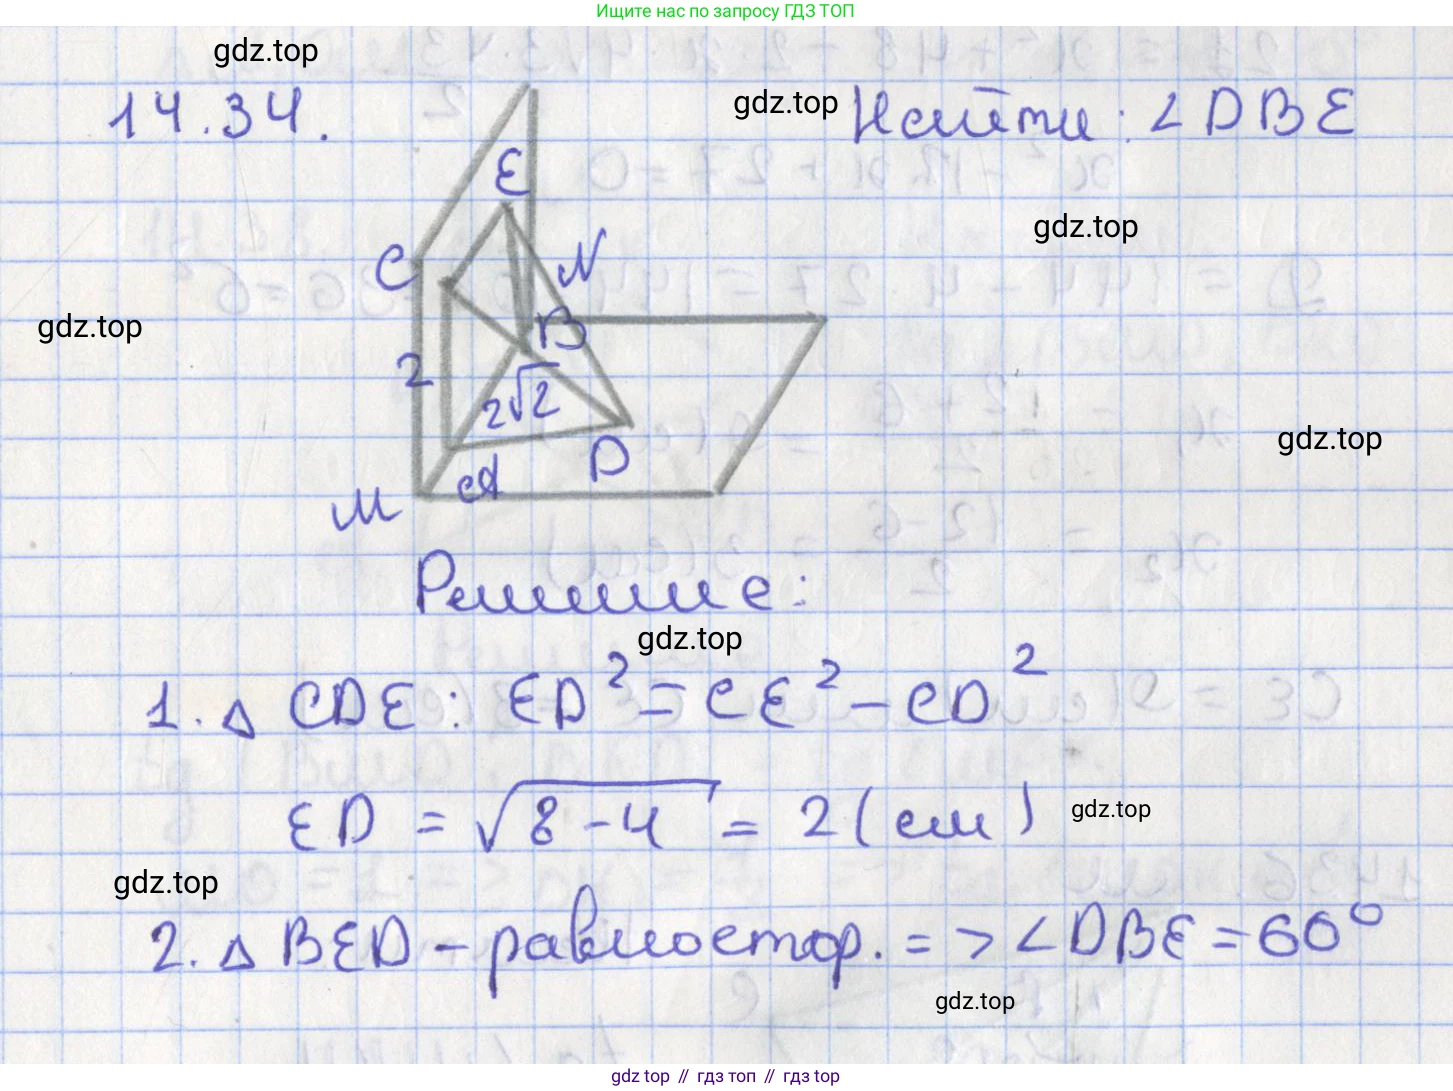 Ищите нас по запросу ГДЗ ТОП
gdz.top
14.34.
gdz.top
Найти: ∠DBE
E
gdz.top
C
N
gdz.top
B
2
2√2
gdz.top
D
A
M
Решение:
gdz.top
1. △ CDE: ED² = CE² - CD²
ED = √8-4 = 2 (см)
gdz.top
gdz.top
2. △ BED - равностор. => ∠DBE = 60°
gdz.top
gdz top // гдз топ // гдз top